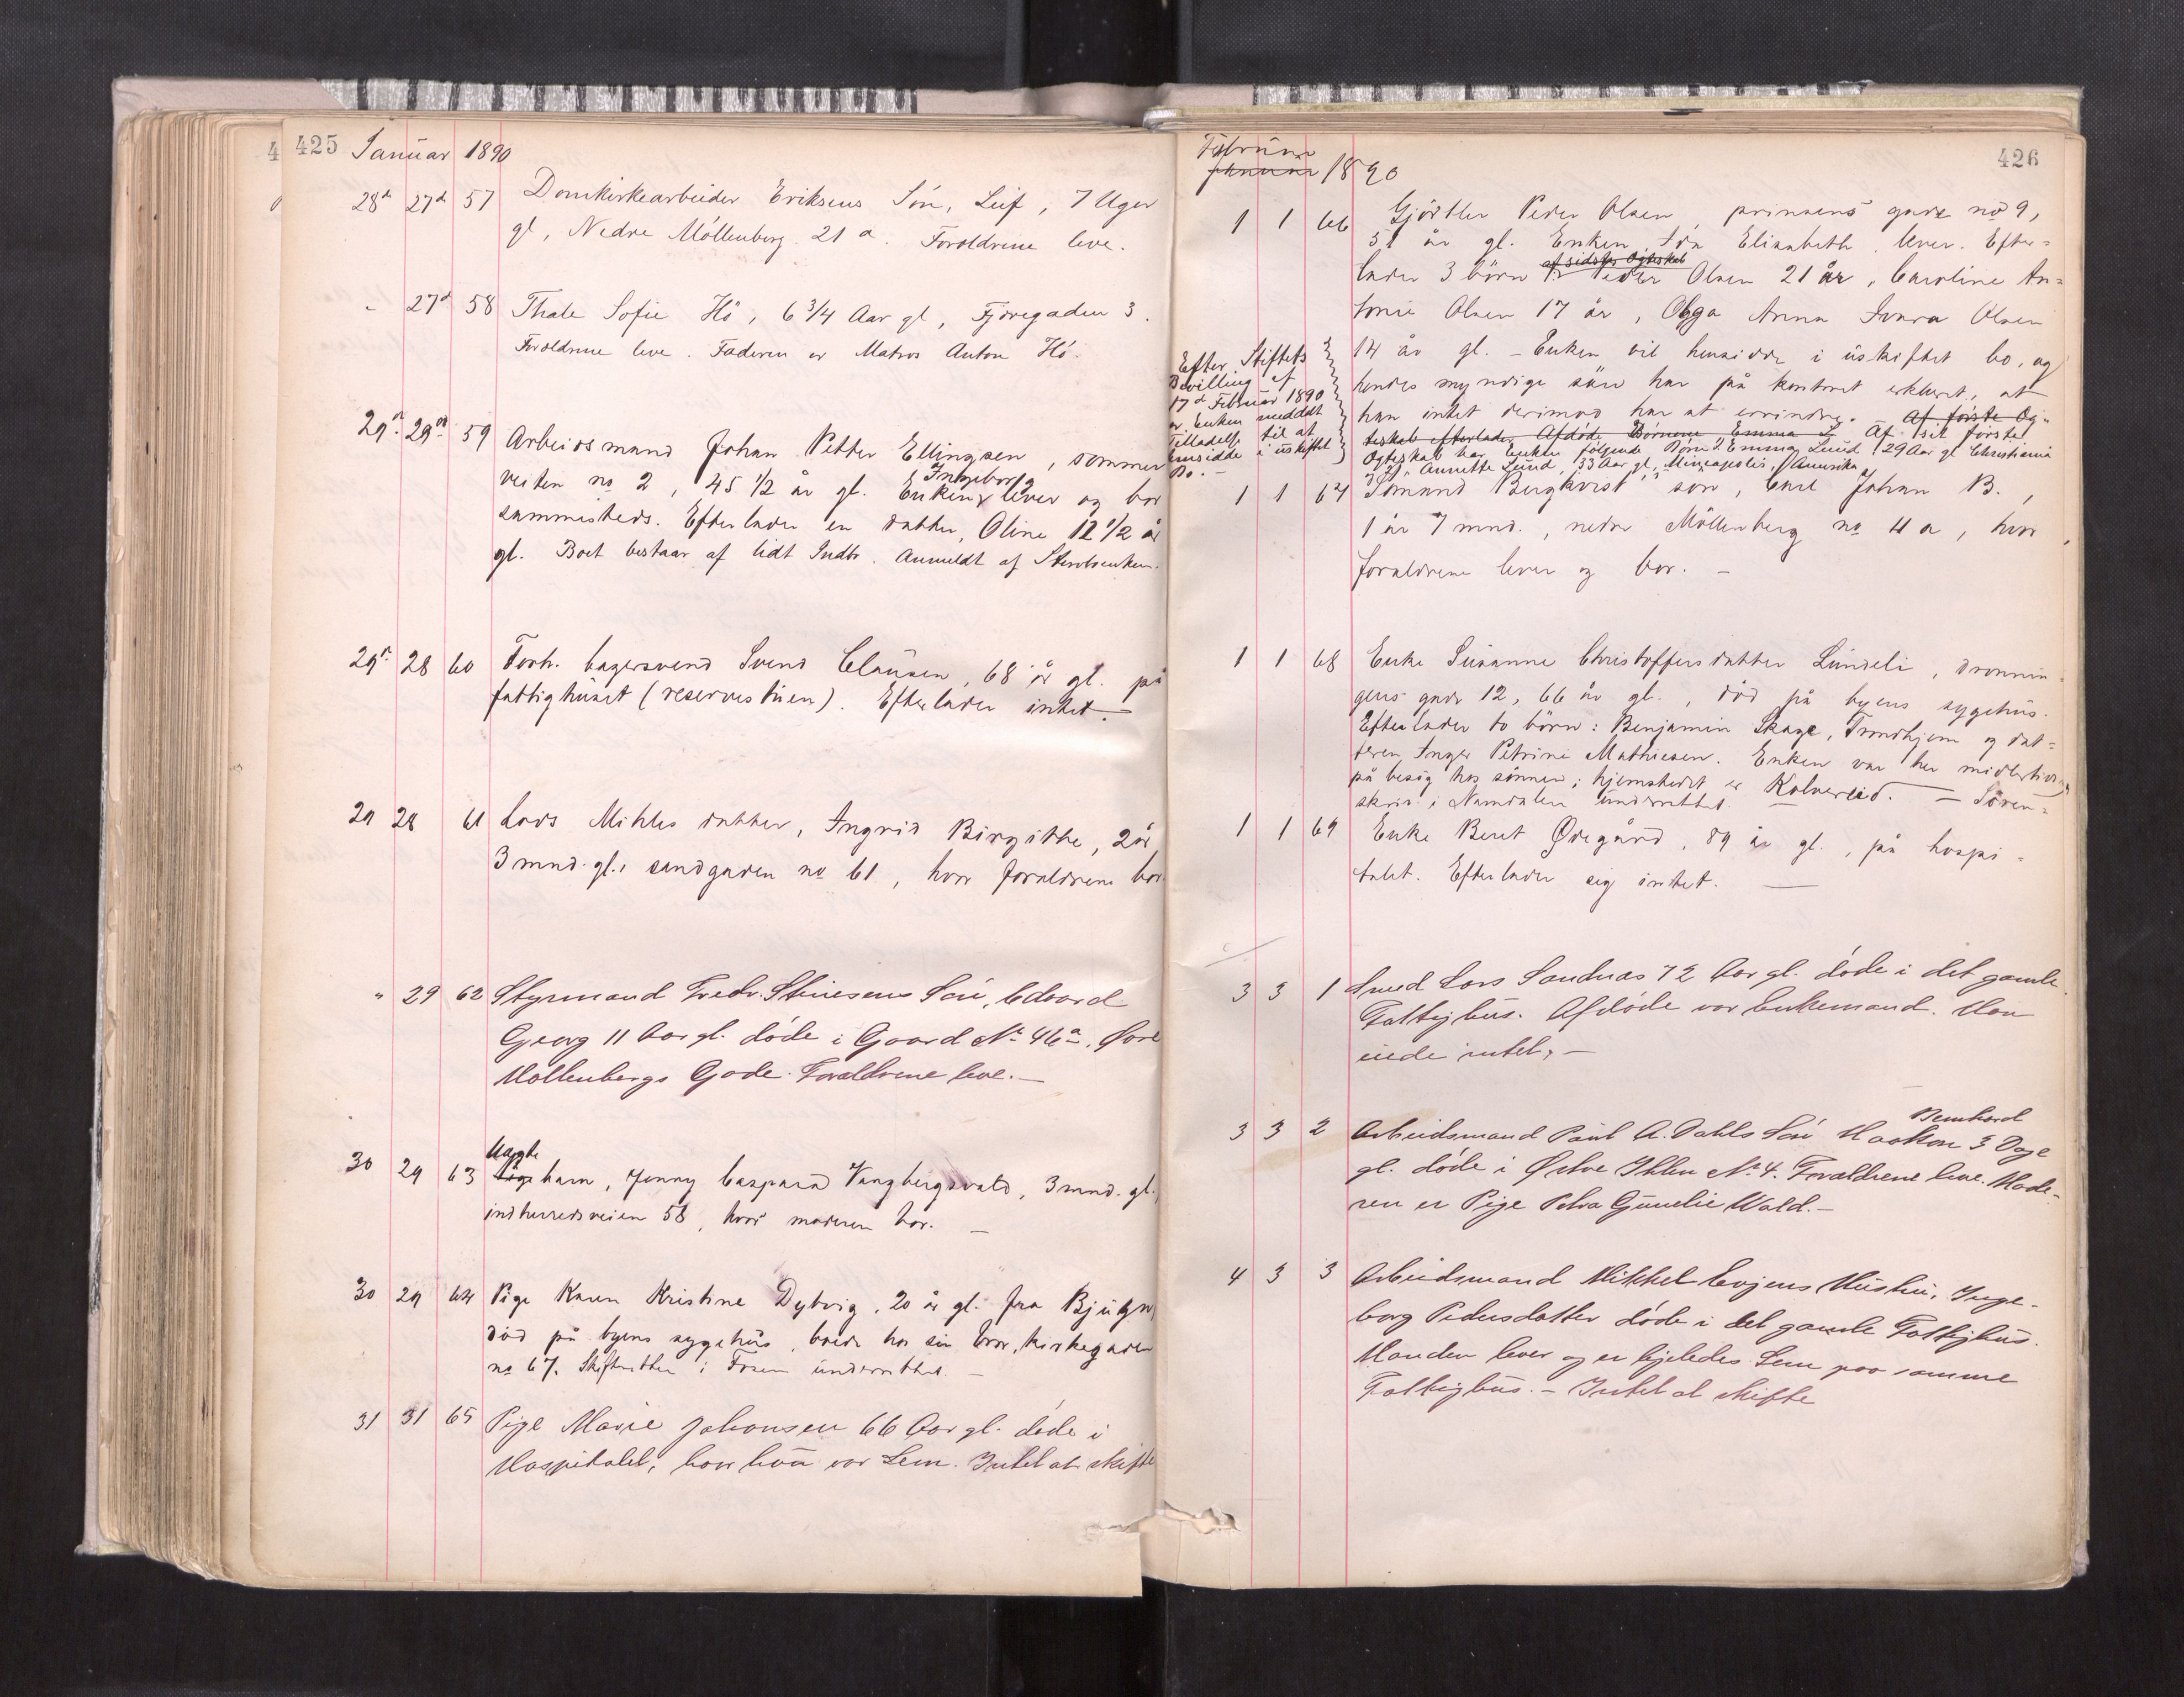 425 Januar 1890
28de 27de 57 Domkirkearbeider Eriksens Sön, Leif, 7 Uger
gl, Nedre Möllenberg 21 a. Forældrene leve.
" 27de 58 Thale Sofie Hö, 6 3/4 Aar gl, Fjæregaden 3.
Forældrene leve. Faderen er Matros Anton Hö.
29de 29de 59 Arbeidsmand Johan Petter Ellingsen, sommer
veiten no 2, 45 1/2 år gl. Enken Ingeborg lever og bor
sammesteds. Efterlader en datter, Oline 12 1/2 år
gl. Boet bestaar af lidt Indbo. Anmeldt af Stervboenken.
29de 28 60 Forh. bagersvend Svend Clausen, 68 år gl. på
fattighuset (reservestuen). Efterlader intet. —
29 28 61 Lods Mikles datter, Ingrid Birgitte, 2 år
3 mnd. gl., sandgaden no 61, hvor forældrene bor.
" 29 62 Styrmand Fredr. Stinesens Sön, Edvard
Georg 11 Aar gl. döde i Gaard No 46a, Øvre
Möllenbergs Gade. Forældrene leve. —
30 29 63 Uægte
Pigebarn, Jenny Caspara Vangbergsvald, 3 mnd. gl.,
indherredsveien 58, hvor moderen bor. —
30 29 64 Pige Karen Kristine Dybvig, 20 år gl. fra Bjugn,
död på byens sygehus, boede hos sin bror, kirkegaden
no 67. Skifteretten i Fosen underrettet. —
31 31 65 Pige Marie Johansen 66 Aar gl. döde i
Hospitalet, hvor hun var Lem. Intet at skifte
426
Februar
Januar 1890
1 1 66 Gjörtler Peder Olsen, prinsens gade no 9,
51 år gl. Enken Ida Elisabeth lever. Efter=
lader 3 börn af sidste Ægteskab Peder Olsen 21 år, Caroline An=
tonie Olsen 17 år, Olga Anna Ivara Olsen
14 år gl. — Enken vil hensidde i uskiftet bo, og
hendes myndige sön har på kontoret erklæret, at
han intet derimod har at erindre. — Af förste Æg=
teskab efterlader Afdöde Börnene Emma L Af sit förste
Ægteskab har Enken fölgende Börn: 1. Emma Lund 29 Aar gl. Christiania
2. Annette Lund, 33 Aar gl, Mineapolis, Amerika
Efter Stiftets
Bevilling af
17de Februar 1890
er Enken meddelt
Tilladelse til at
hensidde i uskiftet
Bo. —
1 1 67 Sömand Bergkvists sön, Carl Johan B.,
1 år 7 mnd., nedre Möllenberg no 4 a, hvor
forældrene lever og bor. —
1 1 68 Enke Susanne Christoffersdatter Lundeli, dronnin=
gens gade 12, 66 år gl., död på byens sygehus.
Efterlader to börn: Benjamin Skage, Trondhjem og dat=
teren Inger Petrine Mathiesen. Enken var her midlertidig
på besög hos sönnen; hjemstedet er Kolvereid. — Soren=
skriv. i Namdalen underrettet.
1 1 69 Enke Beret Ødegård, 89 år gl., på hospi=
talet. Efterlader sig intet. —
3 3 1 Smed Lars Sandnæs 72 Aar gl. döde i det gamle
Fattighus. Afdöde var Enkemand. Han
eiede intet. —
3 3 2 Arbeidsmand Paul A. Dahls Sön Haakon Bernhard 3 Dage
gl. döde i Østre Ihlen No 4. Forældrene leve. Mode=
ren er Pige Petra Gunelie Wold. —
4 3 3 Arbeidsmand Mikkel Evjens Hustru, Inge=
borg Pedersdatter döde i det gamle Fattighus.
Manden lever og er ligeledes Lem paa samme
Fattighus. — Intet at skifte